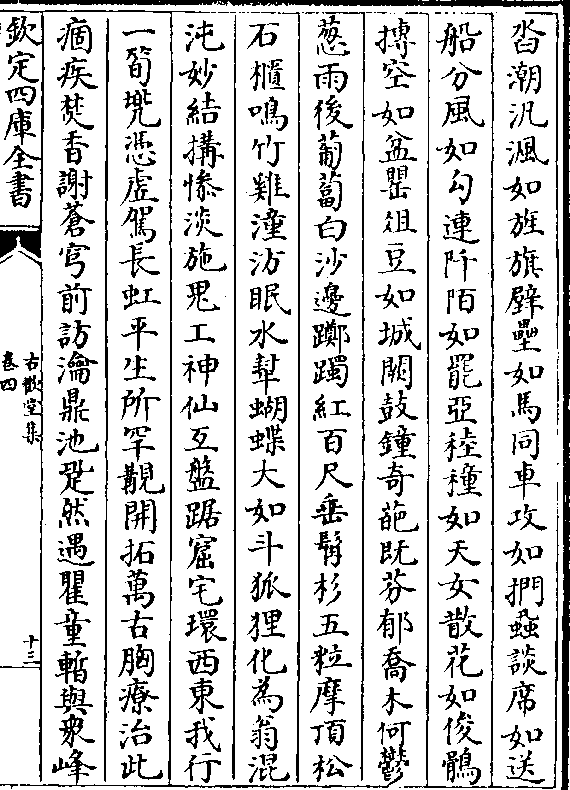 沓潮汎渢如旌旗壁壘如馬同車攻如捫蝨談席如送
船分風如勾連阡陌如罷亞稑穜如天女散花如俊鶻
搏空如盆罌俎豆如城闕鼓鐘奇葩既芬郁喬木何鬱
葱雨後葡萄白沙邊躑躅紅百尺垂髯杉五粒摩頂松
石櫃鳴竹雞潼汸眠水犎蝴蝶大如斗狐狸化為翁混
沌妙結搆慘淡施鬼工神仙互盤踞窟宅環西東我行
一筍兠憑虛駕長虹平生所罕覯開拓萬古胸療治此
痼疾焚香謝蒼穹前訪瀹鼎池跫然遇瞿童暫與衆峰
欽定四庫全書
古歡堂集
卷四
十三